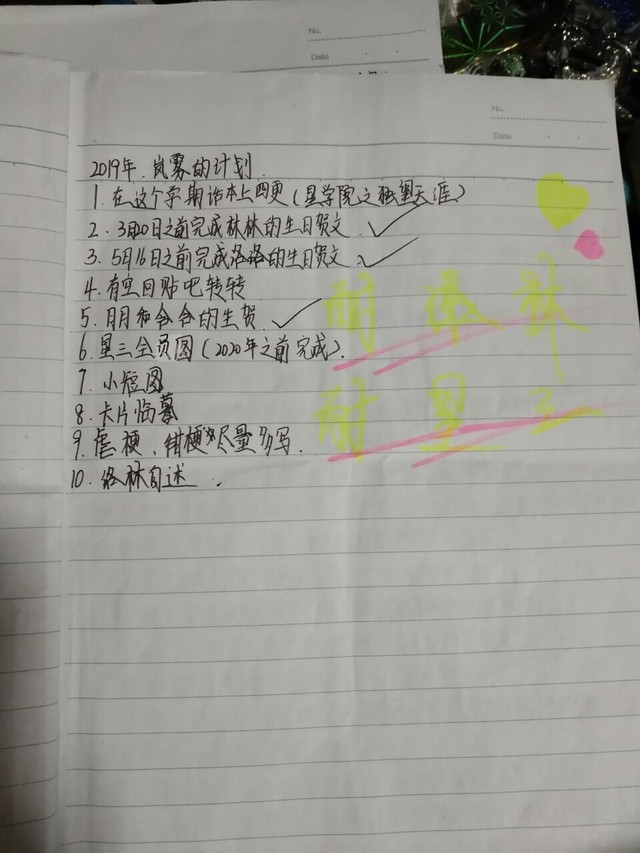 No.
Date
No.
Date
2019年.岚雾的计划.
1.在这个学期话本上四更(星学院之独望天涯)
2.3月20日之前完成林林的生日贺文
3.5月16日之前完成洛洛的生日贺文
4.有空回贴吧转转
5.月月和合合的生贺.
6.星三全员图(2020年之前完成).
7.小短图
8.卡片临摹
9.虐梗、甜梗尽量多写.
10.洛林自述.
林
耐星三